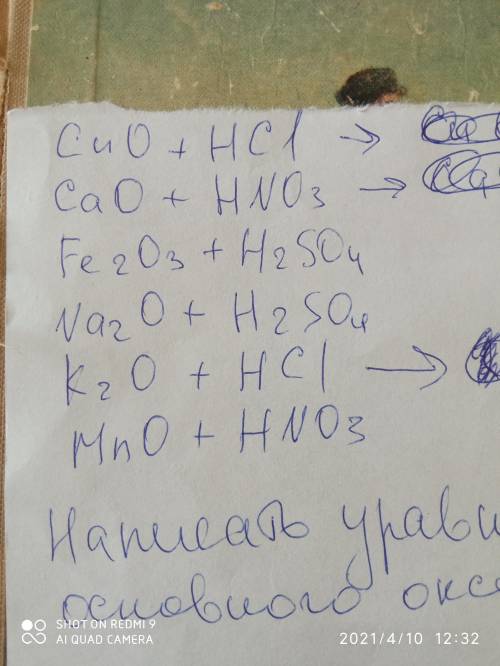 CuO + HCl →
CaO + HNO3 →
Fe2O3 + H2SO4
Na2O + H2SO4
K2O + HCl →
MnO + HNO3
Написать
основного
SHOT ON REDMI 9
AI QUAD CAMERA
2021/4/10 12:32